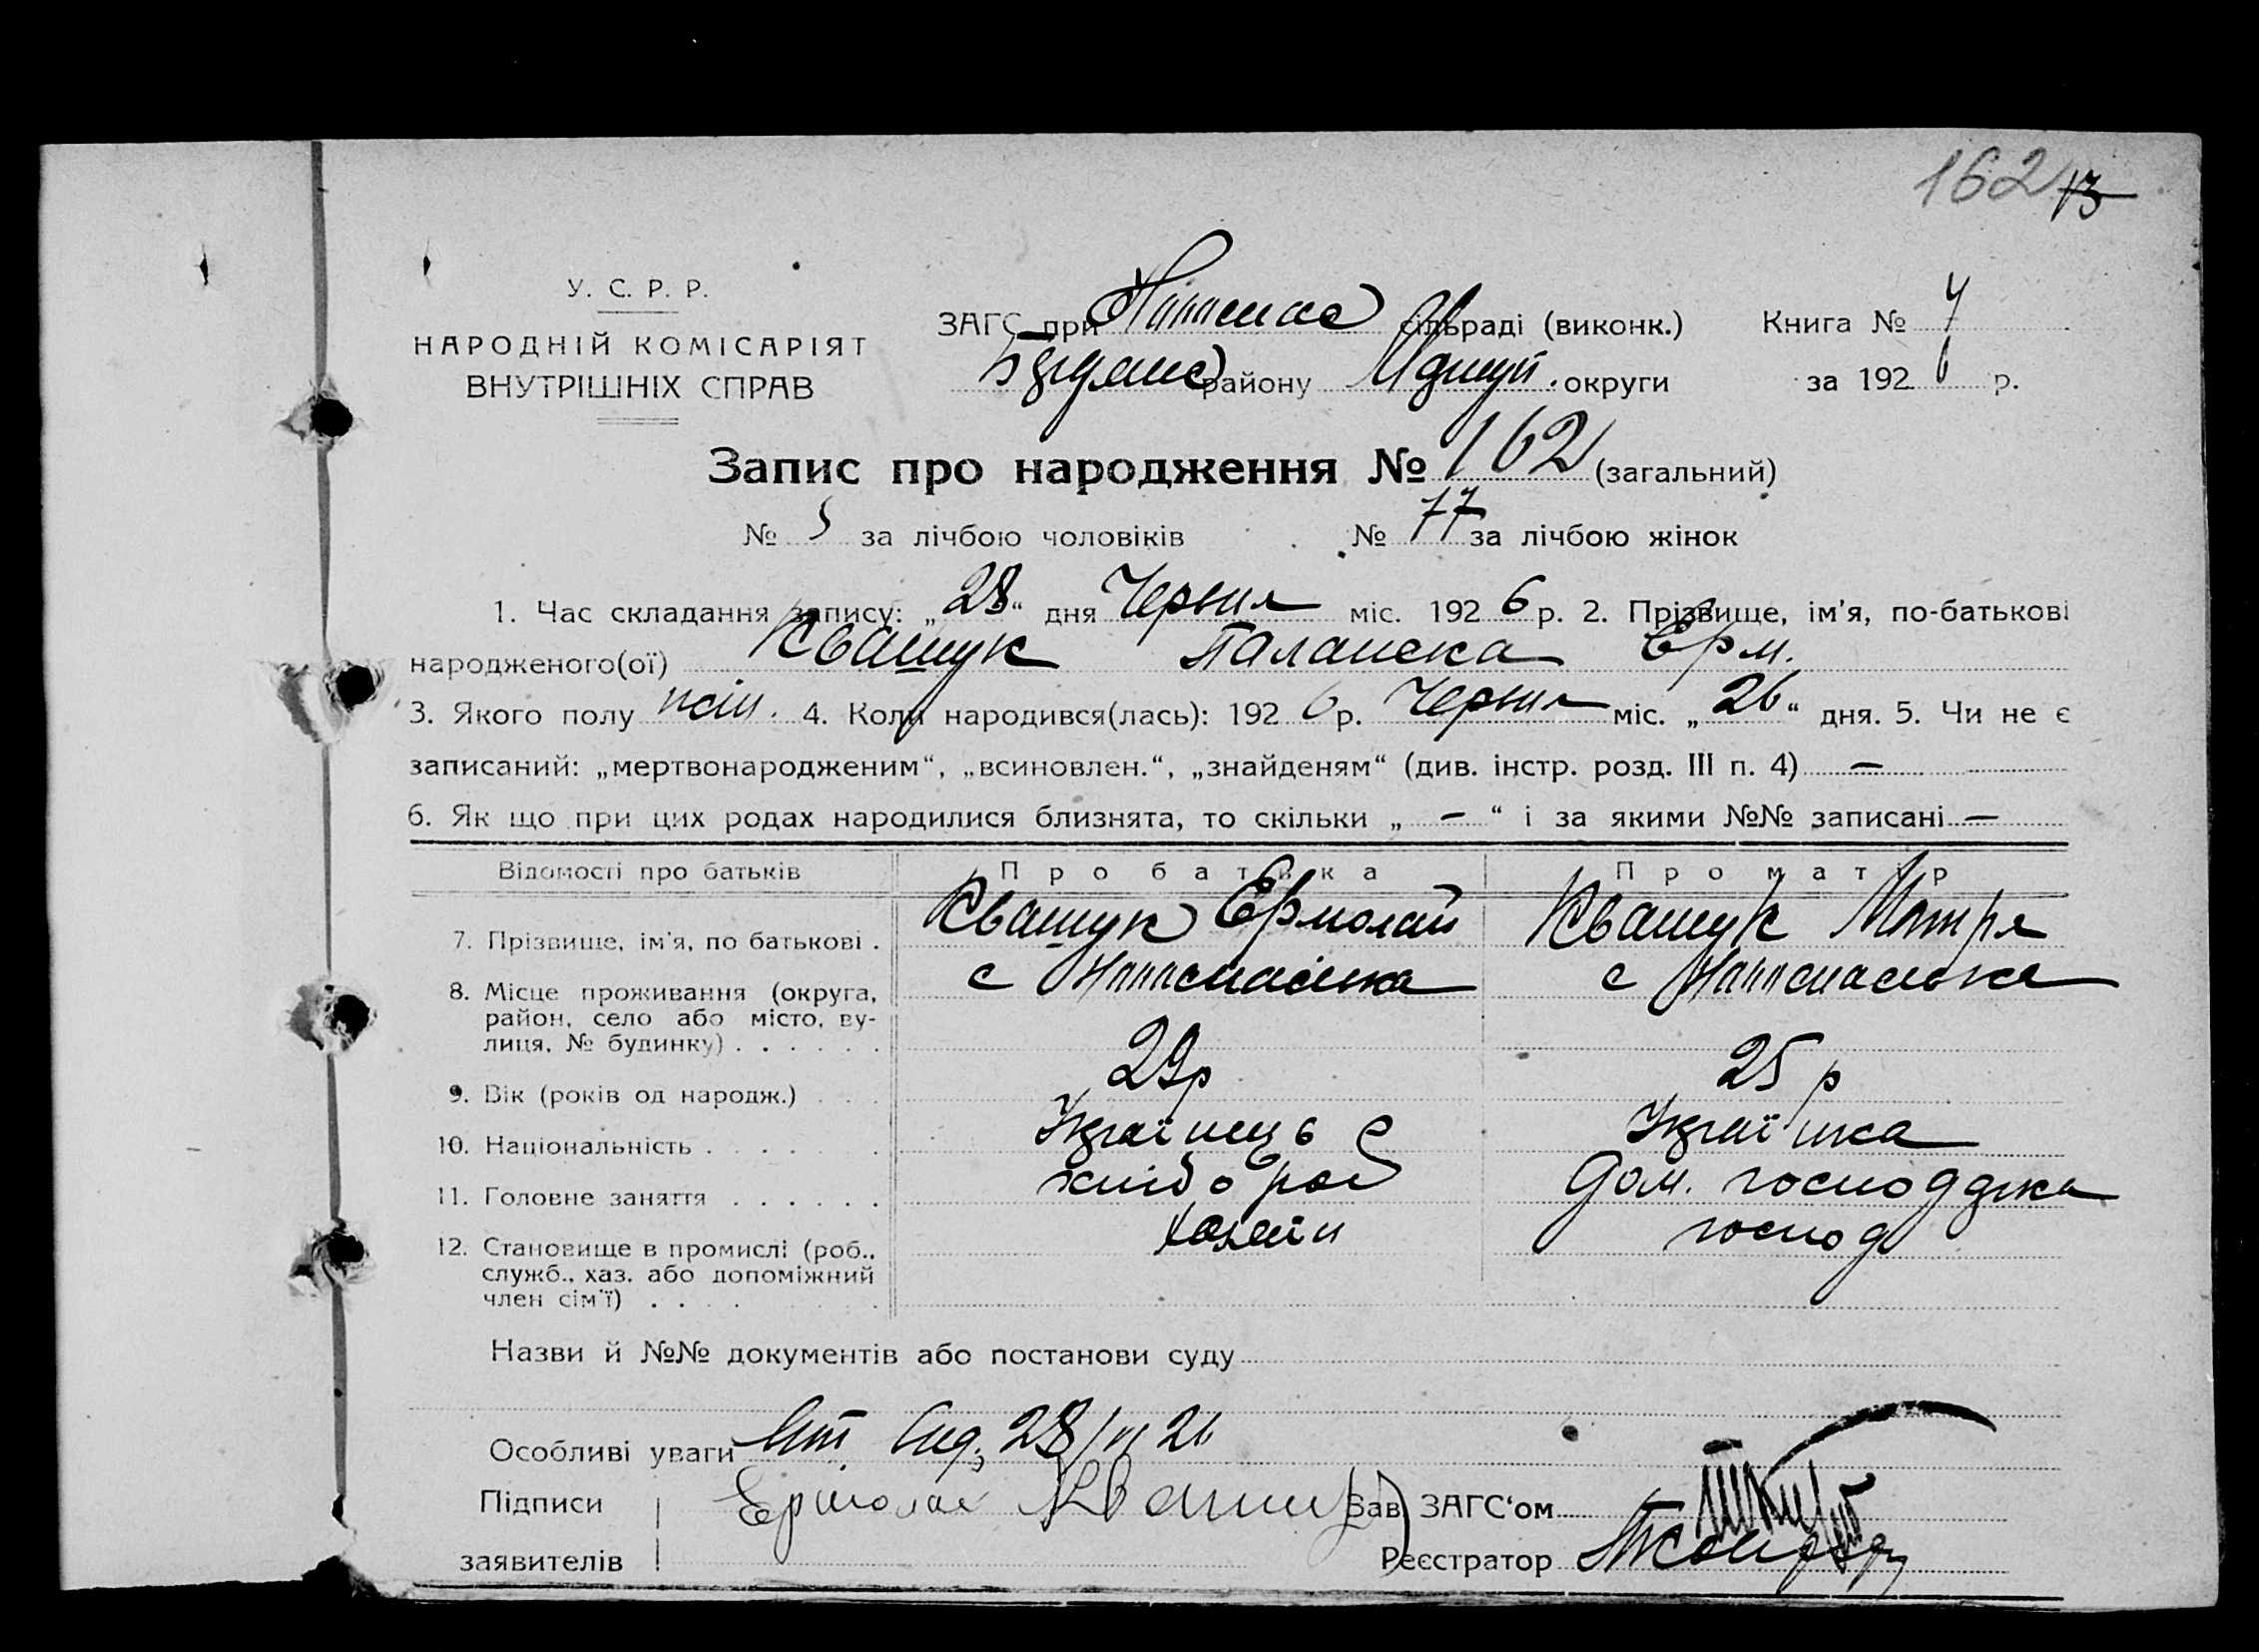 162 13
У. С. Р. Р.
НАРОДНІЙ КОМІСАРІЯТ
ВНУТРІШНІХ СПРАВ
ЗАГС при сільраді (виконк.) Книга №
району округи за 192 6 р.
Запис про народження № 162 (загальний)
№ за лічбою чоловіків № 77 за лічбою жінок
1. Час складання запису: „28“ дня Червня міс. 1926 р. 2. Прізвище, ім'я, по-батькові
народженого(ої) Квашук Палашка Ерм.
3. Якого полу 4. Коли народився(лась): 1926 р. Червня міс. „26“ дня. 5. Чи не є
записаний: „мертвонародженим“, „всиновлен.“, „знайденям“ (див. інстр. розд. III п. 4) —
6. Як що при цих родах народилися близнята, то скільки „ — “ і за якими №№ записані —
Відомості про батьків Про батька Про матір
7. Прізвище, ім'я, по батькові . Квашук Ермолай Квашук Мотря
8. Місце проживання (округа, с с
район, село або місто, ву-
лиця, № будинку) . . . . . .
9. Вік (років од народж.) . . . 29р 25 р
10. Національність . . . . . . . Українець Українка
11. Головне заняття . . . . . . хлібороб Дом. господарка
12. Становище в промислі (роб., хазяїн господ
служб., хаз. або допоміжний
член сім'ї) . . . .
Назви й №№ документів або постанови суду
Особливі уваги 28/VI 26
Підписи Ермолай Квашук Зав. ЗАГС'ом
заявителів Реєстратор